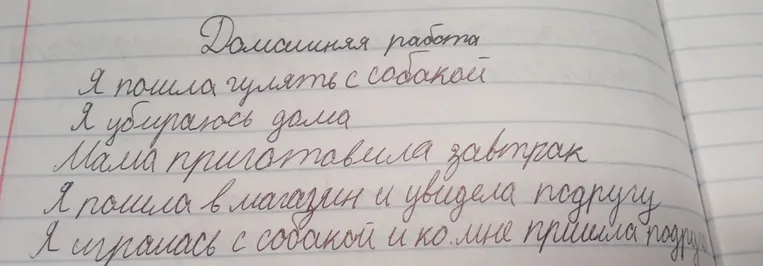 Домашняя работа
Я пошла гулять с собакой
Я убираюсь дома
Мама приготовила завтрак
Я пошла в магазин и увидела подругу
Я игралась с собакой и ко мне пришла подруга